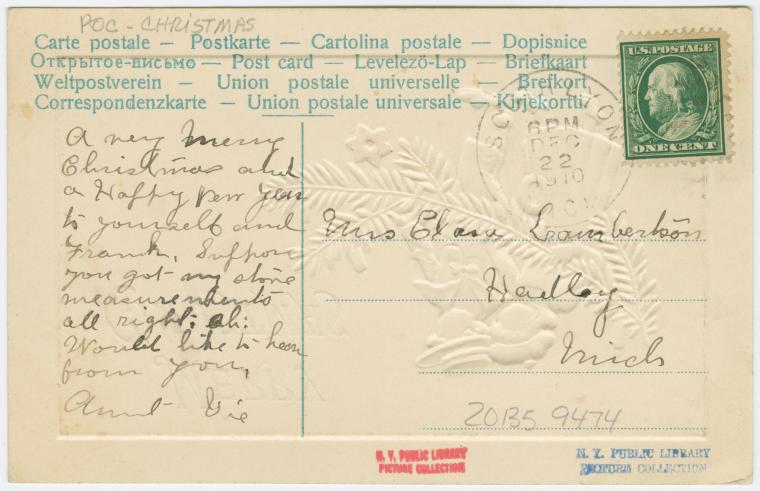 POC - CHRISTMAS
Carte postale — Postkarte — Cartolina postale — Dopisnice
Открытое-письмо — Post card — Levelezö-Lap — Briefkaart
Weltpostverein — Union postale universelle — Brefkort
Correspondenzkarte — Union postale universale — Kirjekortti
U.S. POSTAGE
ONE CENT
SOUTH LYON
6 PM
DEC
22
1910
MICH
A very Merry
Christmas and
a Happy New Year
to yourself and
Frank, Suppose
you got my stove
measurements
all right: eh:
Would like to hear
from you,
Aunt Vie
Mrs Clara Lambertson
Hadley
Mich
20B5 9474
N. Y. PUBLIC LIBRARY
PICTURE COLLECTION
N. Y. PUBLIC LIBRARY
PICTURE COLLECTION